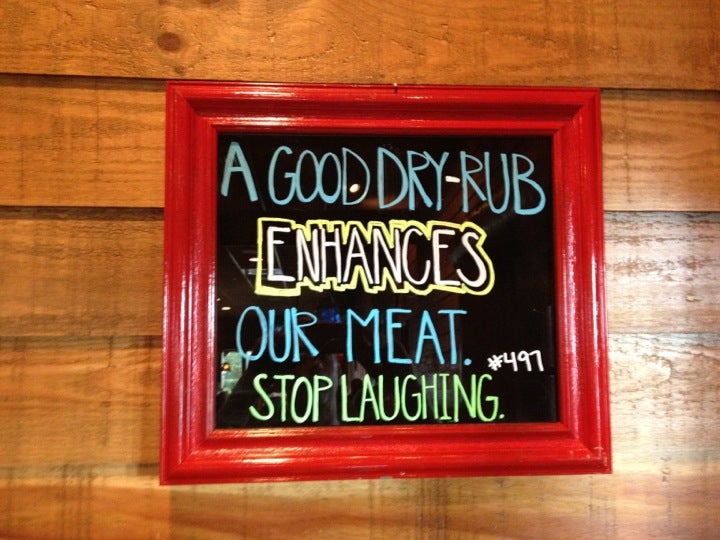 A GOOD DRY-RUB
ENHANCES
OUR MEAT.
#497
STOP LAUGHING.